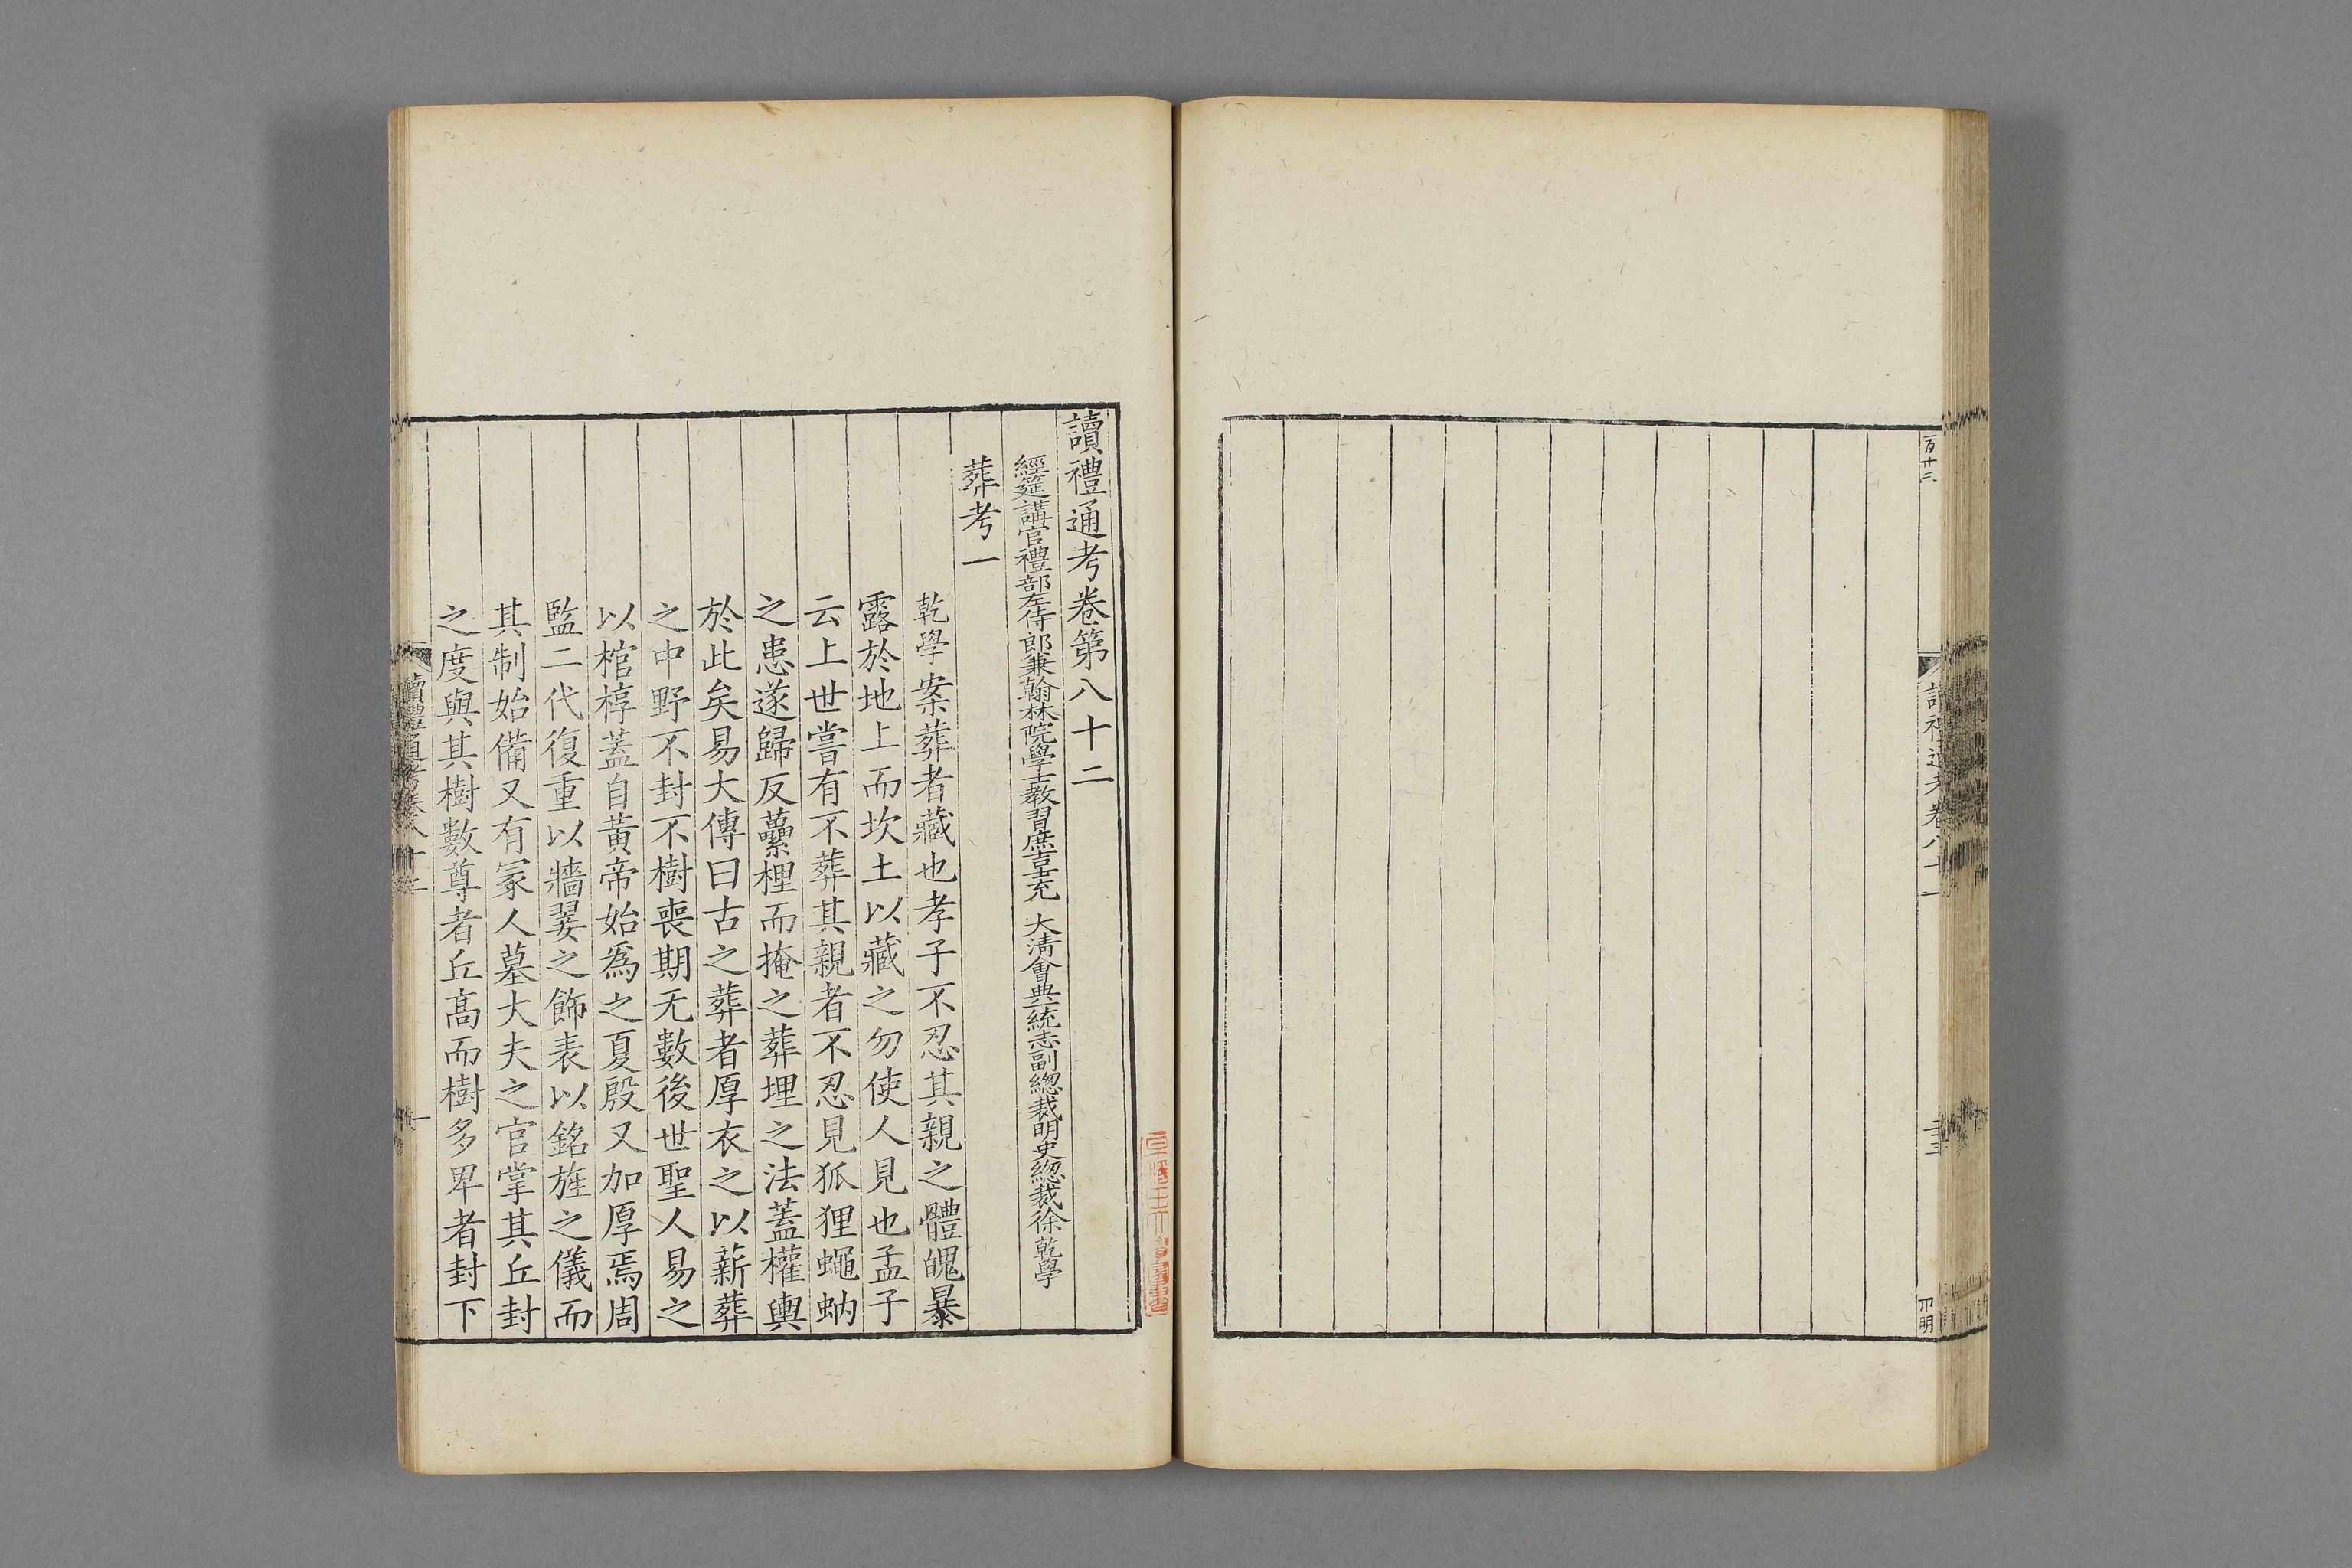 百廿三
讀禮通考卷八十一
二十三
讀禮通考卷第八十二
經筵講官禮部左侍郎兼翰林院學士教習庶吉士充 大清會典一統志副總裁明史總裁徐乾學
葬考一
乾學案葬者藏也孝子不忍其親之體魄暴
露於地上而坎土以藏之勿使人見也孟子
云上世嘗有不葬其親者不忍見狐狸蠅蚋
之患遂歸反虆梩而掩之葬埋之法蓋權輿
於此矣易大傳曰古之葬者厚衣之以薪葬
之中野不封不樹喪期无數後世聖人易之
以棺椁蓋自黃帝始爲之夏殷又加厚焉周
監二代復重以牆翣之飾表以銘旌之儀而
其制始備又有冢人墓大夫之官掌其丘封
之度與其樹數尊者丘高而樹多卑者封下
讀禮通考卷八十二
一